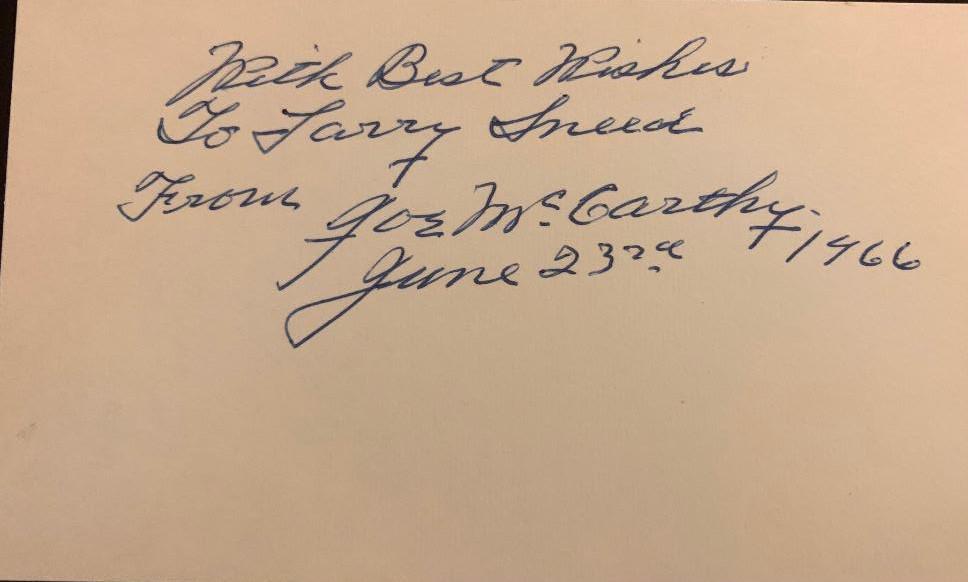 With Best Wishes
To Larry Sneed
From Joe McCarthy.
June 23rd 1966